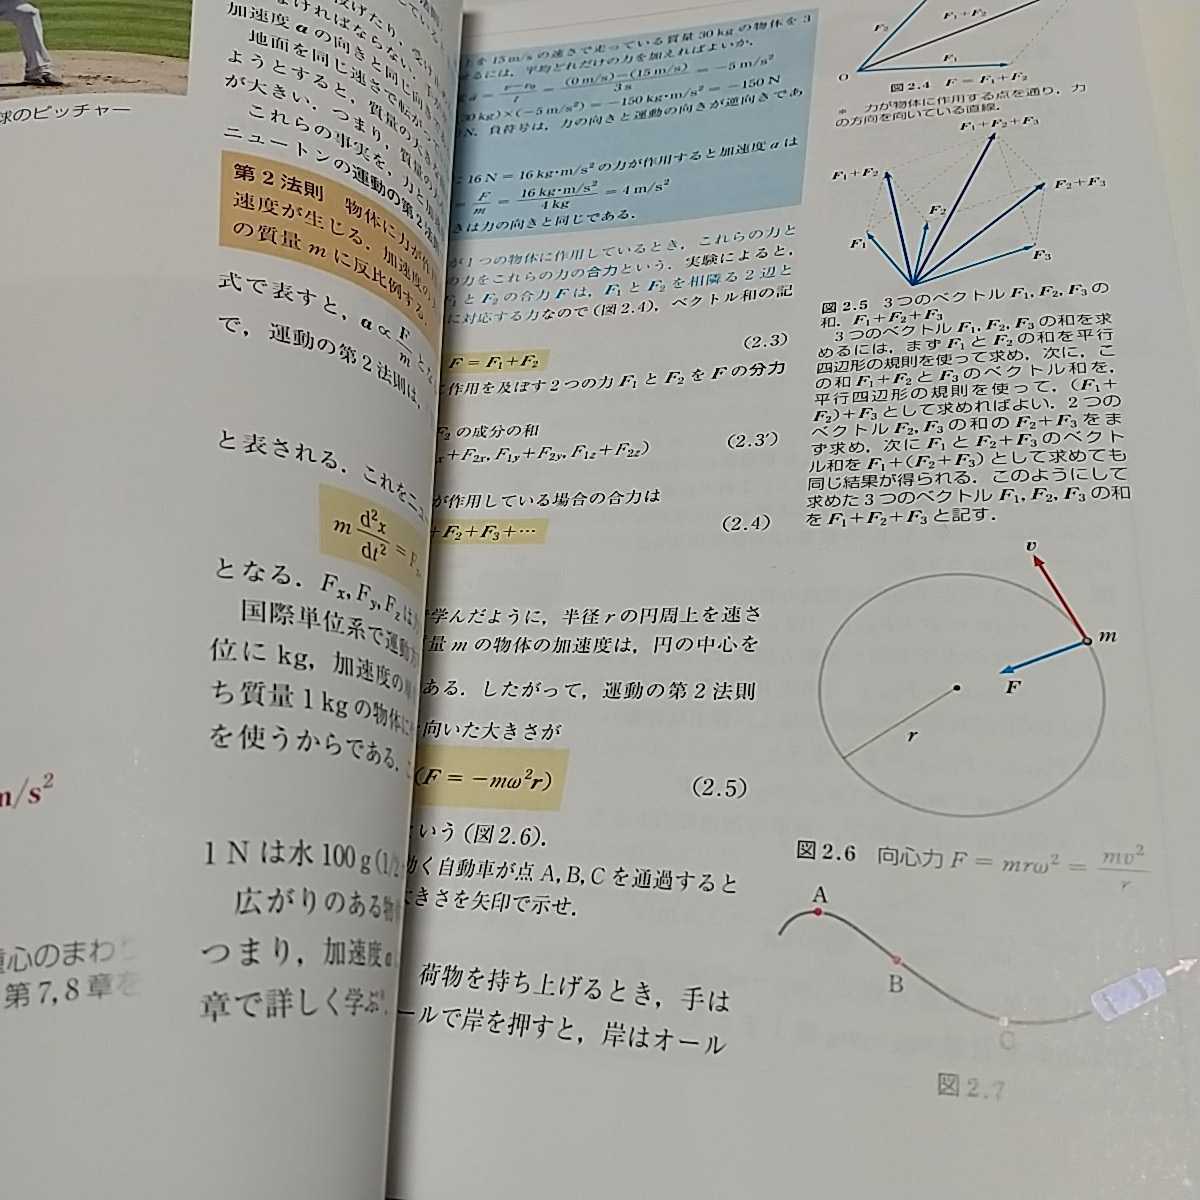 球のピッチャー
m/s²
重心のまわり
第7, 8章を
投げたり，受け
なければならない．手が
加速度 a の向きと同じ向き
地面を同じ速さで転がって
ようとすると，質量の大き
が大きい．つまり，質量の
これらの事実を，力と加速
ニュートンの運動の第2法則
第2法則　物体に力が作用
速度が生じる．加速度の
の質量 m に反比例する．
式で表すと，a ∝ F/m とな
で，運動の第2法則は，
と表される．これをニュ
m d²x/dt² = Fx
となる．Fx, Fy, Fz は力
国際単位系で運動方
位に kg，加速度の単
ち質量 1 kg の物体に
を使うからである．
1 N は水 100 g (1/2
広がりのある物
つまり，加速度 a
章で詳しく学ぶ．
を 15 m/s の速さで走っている質量 30 kg の物体を 3
るには，平均どれだけの力を加えればよいか．
a = (v−v₀)/t = ((0 m/s)−(15 m/s))/3 s = −5 m/s²
30 kg)×(−5 m/s²) = −150 kg·m/s² = −150 N
N．負符号は，力の向きと運動の向きが逆向きであ
16 N = 16 kg·m/s² の力が作用すると加速度 a は
= F/m = (16 kg·m/s²)/(4 kg) = 4 m/s²
きは力の向きと同じである．
が1つの物体に作用しているとき，これらの力と
の力をこれらの力の合力という．実験によると，
F₁ と F₂ の合力 F は，F₁ と F₂ を相隣る2辺と
に対応する力なので (図2.4)，ベクトル和の記
F = F₁+F₂ (2.3)
に作用を及ぼす2つの力 F₁ と F₂ を F の分力
F₂ の成分の和
x+F2x, F1y+F2y, F1z+F2z) (2.3′)
が作用している場合の合力は
+F₂+F₃+⋯ (2.4)
で学んだように，半径 r の円周上を速さ
質量 m の物体の加速度は，円の中心を
ある．したがって，運動の第2法則
を向いた大きさが
(F = −mω²r) (2.5)
という (図2.6)．
動く自動車が点 A, B, C を通過すると
大きさを矢印で示せ．
荷物を持ち上げるとき，手は
ールで岸を押すと，岸はオール
F₂
F₁+F₂
F₁
O
図2.4　F = F₁+F₂
* 力が物体に作用する点を通り，力
の方向を向いている直線．
F₁+F₂+F₃
F₁+F₂
F₂+F₃
F₂
F₁
F₃
図2.5　3つのベクトル F₁, F₂, F₃ の
和．F₁+F₂+F₃
3つのベクトル F₁, F₂, F₃ の和を求
めるには，まず F₁ と F₂ の和を平行
四辺形の規則を使って求め，次に，こ
の和 F₁+F₂ と F₃ のベクトル和を，
平行四辺形の規則を使って，(F₁+
F₂)+F₃ として求めればよい．2つの
ベクトル F₂, F₃ の和の F₂+F₃ をま
ず求め，次に F₁ と F₂+F₃ のベクト
ル和を F₁+(F₂+F₃) として求めても
同じ結果が得られる．このようにして
求めた3つのベクトル F₁, F₂, F₃ の和
を F₁+F₂+F₃ と記す．
v
m
F
r
図2.6　向心力 F = mrω² = mv²/r
A
B
C
図2.7